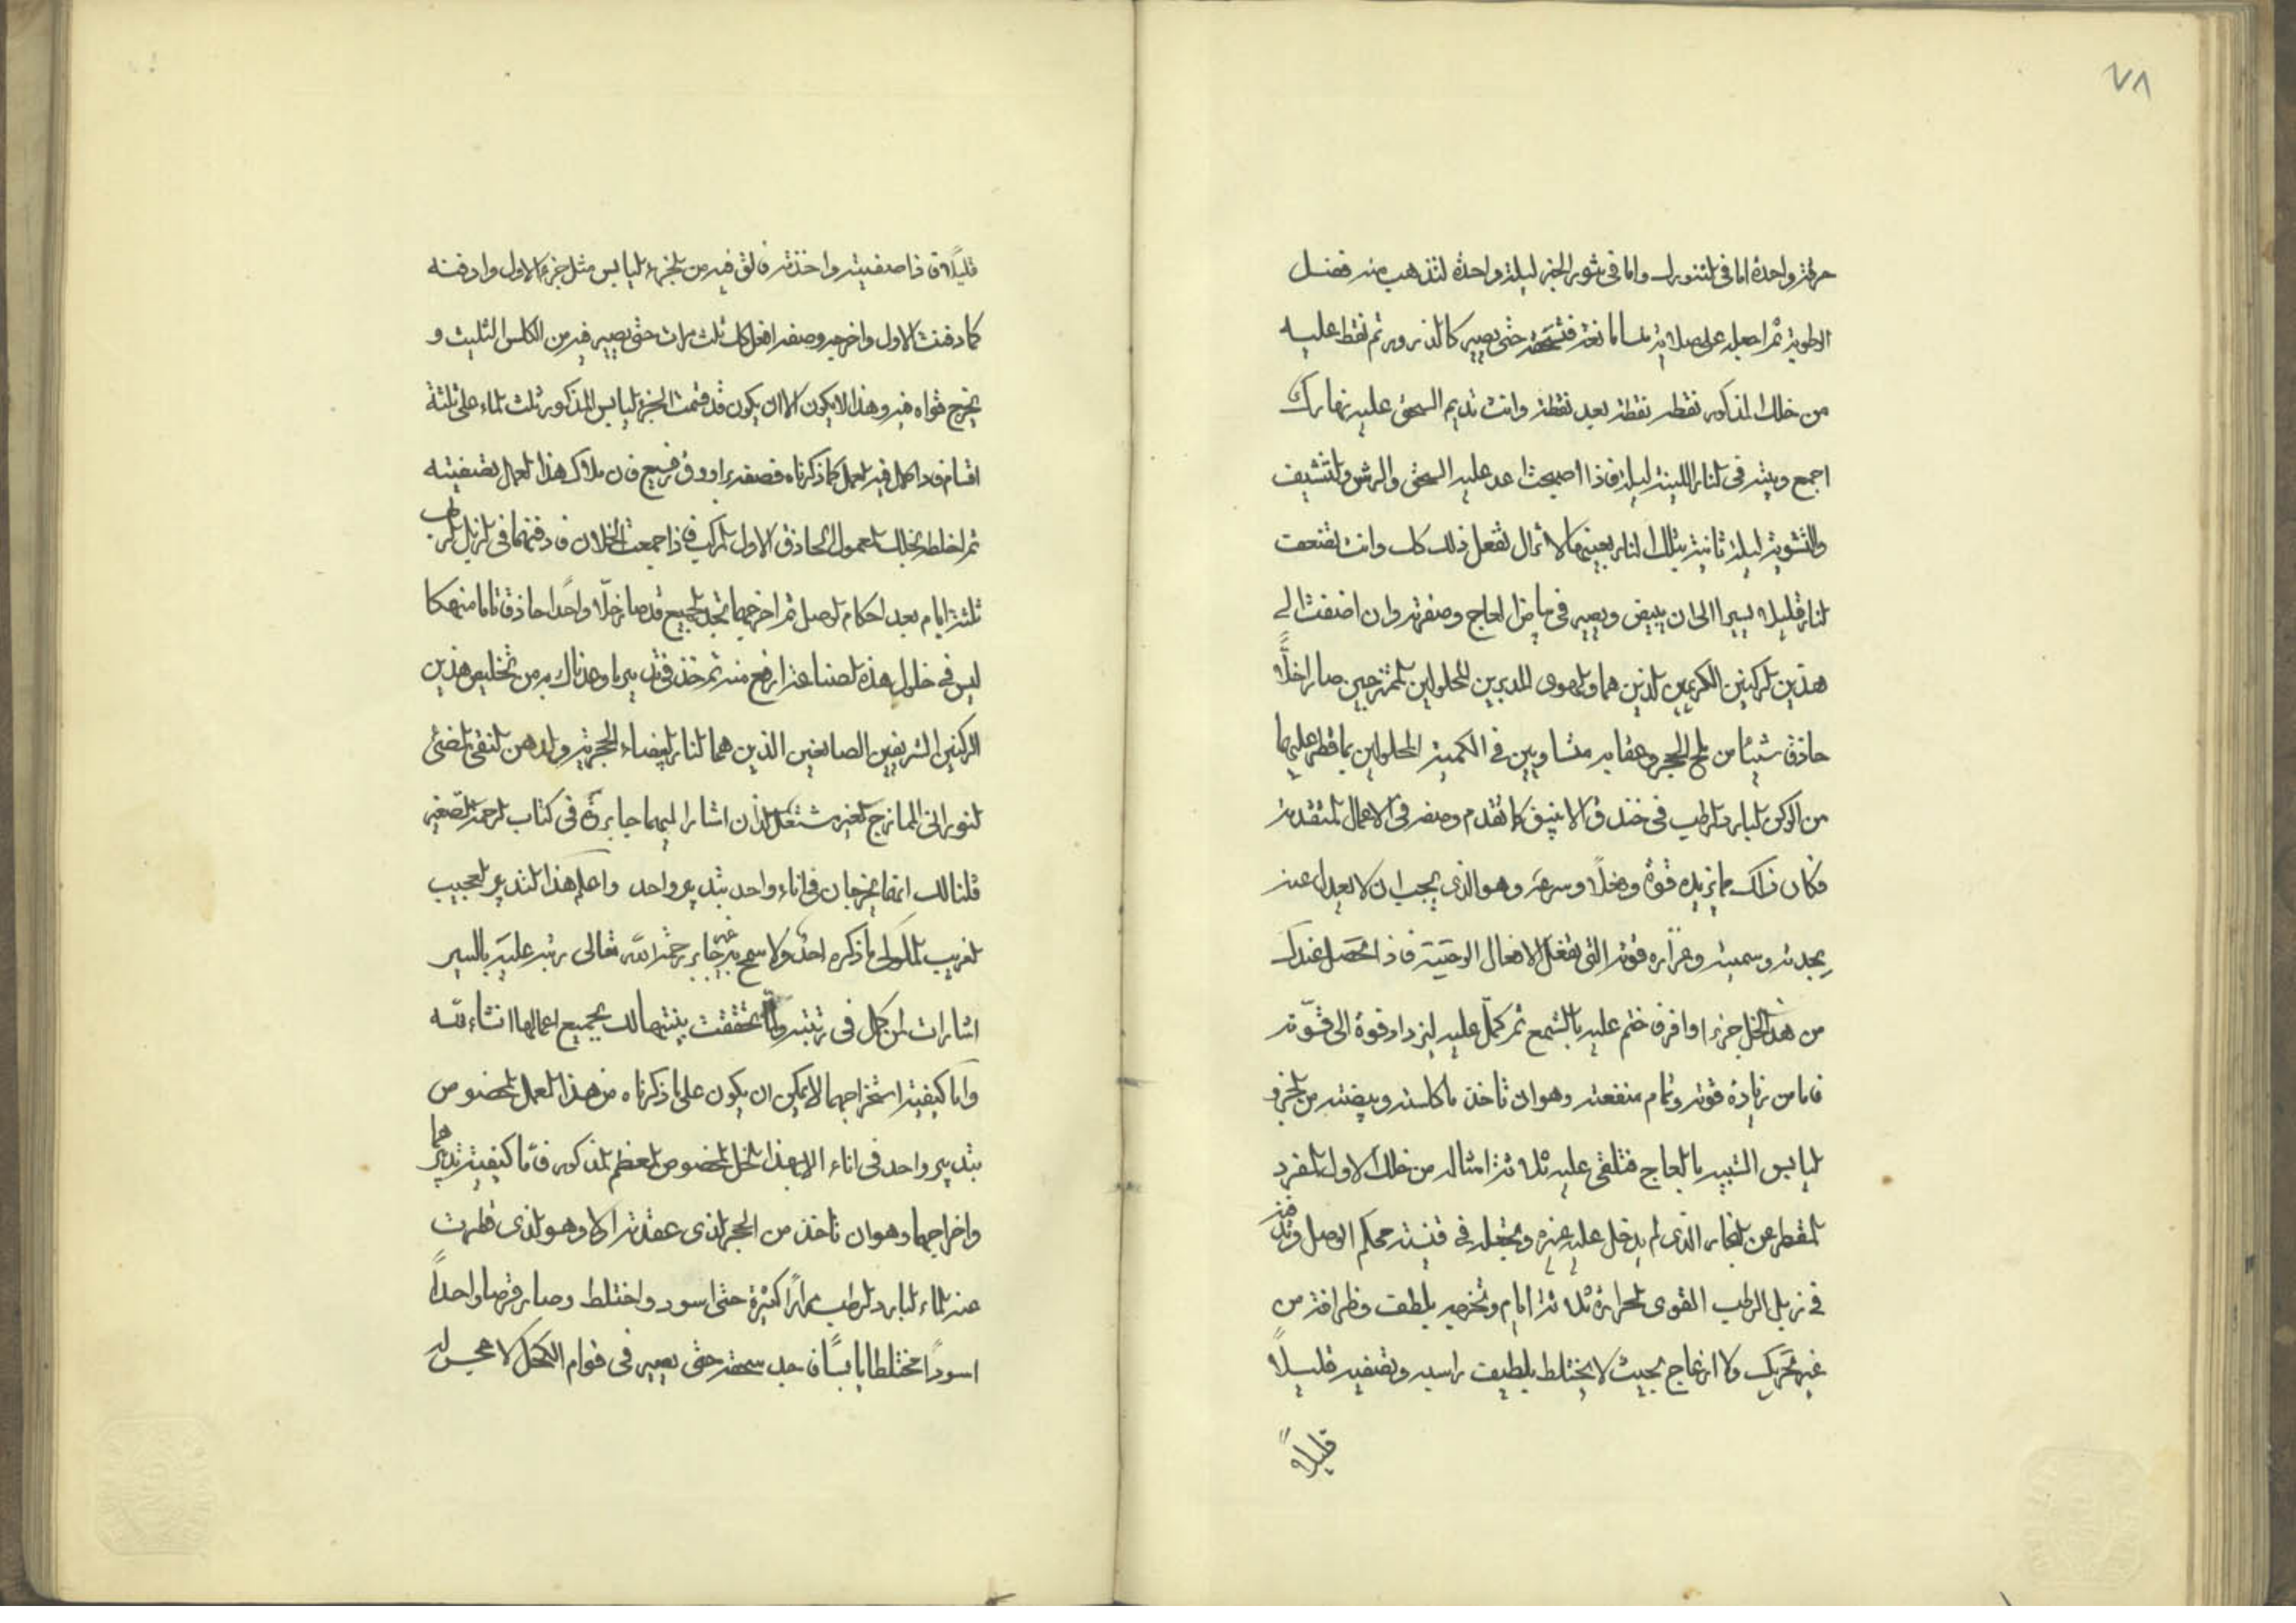 ٧٨
حرقة واحدة اما في التنورك واما في تنور الخبز ليلة واحدة لتذهب منه فضل
الرطوبة ثم اجعله على صلاية فتسحقه حتى يصير كالذرور ثم نقط عليه
من خلك المذكور نقطة نقطة بعد نقطة وانت تديم السحق عليه نهارك
اجمع وبيته في النار اللينة ليلة فاذا اصبحت اعد عليه السحق والرش والتنشيف
والتشوية ليلة ثانية بتلك النار بعينها لا تزال تفعل ذلك وانت
النار قليلا يسيرا الى ان يبيض ويصير في بياض العاج وصفرته وان اضفت الى
هذين الركنين الكريمين الذين هما المدبرين المحلولين الممتزجين صارا خلًّا
حاذق شيئا من ملح الحجر وعقابه متساويين في الكمية المحلولين بما قطر عليهما
من الركن البارد الرطب في خندق الانبيق كما تقدم وصفه في الاعمال المتقدمة
فكان ذلك مما يزيده قوة وسرعة وهو الذي يجب ان لا يعدل عنه
بحدته وسميته وحراره قوته التي تفعل الافعال فاذا تحصل عندك
من هذا الخل جزءا وافر فاختم عليه بالشمع ثم كمل عليه ليزداد قوة الى قوته
فاما من زيادة قوته وتمام منفعته وهو ان تاخذ ما كلسته وبيضته من الجزو
اليابس الشبيه بالعاج فتلقي عليه ثلاثة امثاله من خلك الاول المفرد
المقطر عن الذي لم يدخل عليه غيره وتجعله في قنينة محكم الوصل وتدفنه
في زبل الرطب القوى الحرارة ثلاثة ايام وتخرجه بلطف وظرافة من
غير تحريك ولا انزعاج بحيث لا يختلط راسبه وتصفيه قليلاً
قليلاً
قليلاً فاذا صفيته واخذته فالق فيه من الجزء اليابس مثل جزء الاول وادفنه
كما دفنت الاول واخرجه وصفه افعل ذلك ثلث مرات حتى يصير فيه من الكلس الثليث و
يخرج قواه فيه وهذا لا يكون الا ان يكون قد قسمت الجزء اليابس المذكور ثلث الماء على ثلثة
اقسام فاذا كمل فيه العمل كما ذكرناه فصفه براووق رفيع فان ملاك هذا العمل تصفيته
ثم اخلطه بخلك المعمول الحاذق الاول المركب فاذا جمعت الخلان فادفنهما في الزبل الرطب
ثلثة ايام بعد احكام الوصل ثم اخرجهما تجد الجميع قد صار خلّا واحدا حاذقا تاما منهكا
ليس في خلول هذه الصناعة ارفع منه ثم خذ في تدبير ما وعدناك به من تخليص هذين
الركنين الشريفين الصابغين الذين هما النار البيضاء الحجرية والدهن النقي المضئ
النوراني الممازج لغير مشتعل الذان اشارا اليهما جابر في كتاب الرحمة الصغير
قلنا لك انهما يخرجان في اناء واحد بتدبير واحد واعلم هذا التدبير العجيب
الغريب الملوكى ما ذكره احد ولا سمح به غير جابر رحمه الله تعالى نبه عليه باليسير
اشارات لمن كمل في رتبته ولما تحققت بنيتها لك بجميع اعمالها انشاء الله
واما كيفية استخراجهما لا يمكن ان يكون على ما ذكرناه من هذا العمل المخصوص
بتدبير واحد في اناء الا بهذا الخل المخصوص المعظم المذكور فاما كيفية تدبيرهما
واخراجهما وهو ان تاخذ من الحجر الذي عقدته اولا وهو الذي قطرت
عنه الماء البارد الرطب مرارًا كثيرة حتى اسود واختلط وصار قرصا واحداً
اسوداً مختلطا يابسًا فاجد سحقه حتى يصير في قوام الكحل لا مجس له